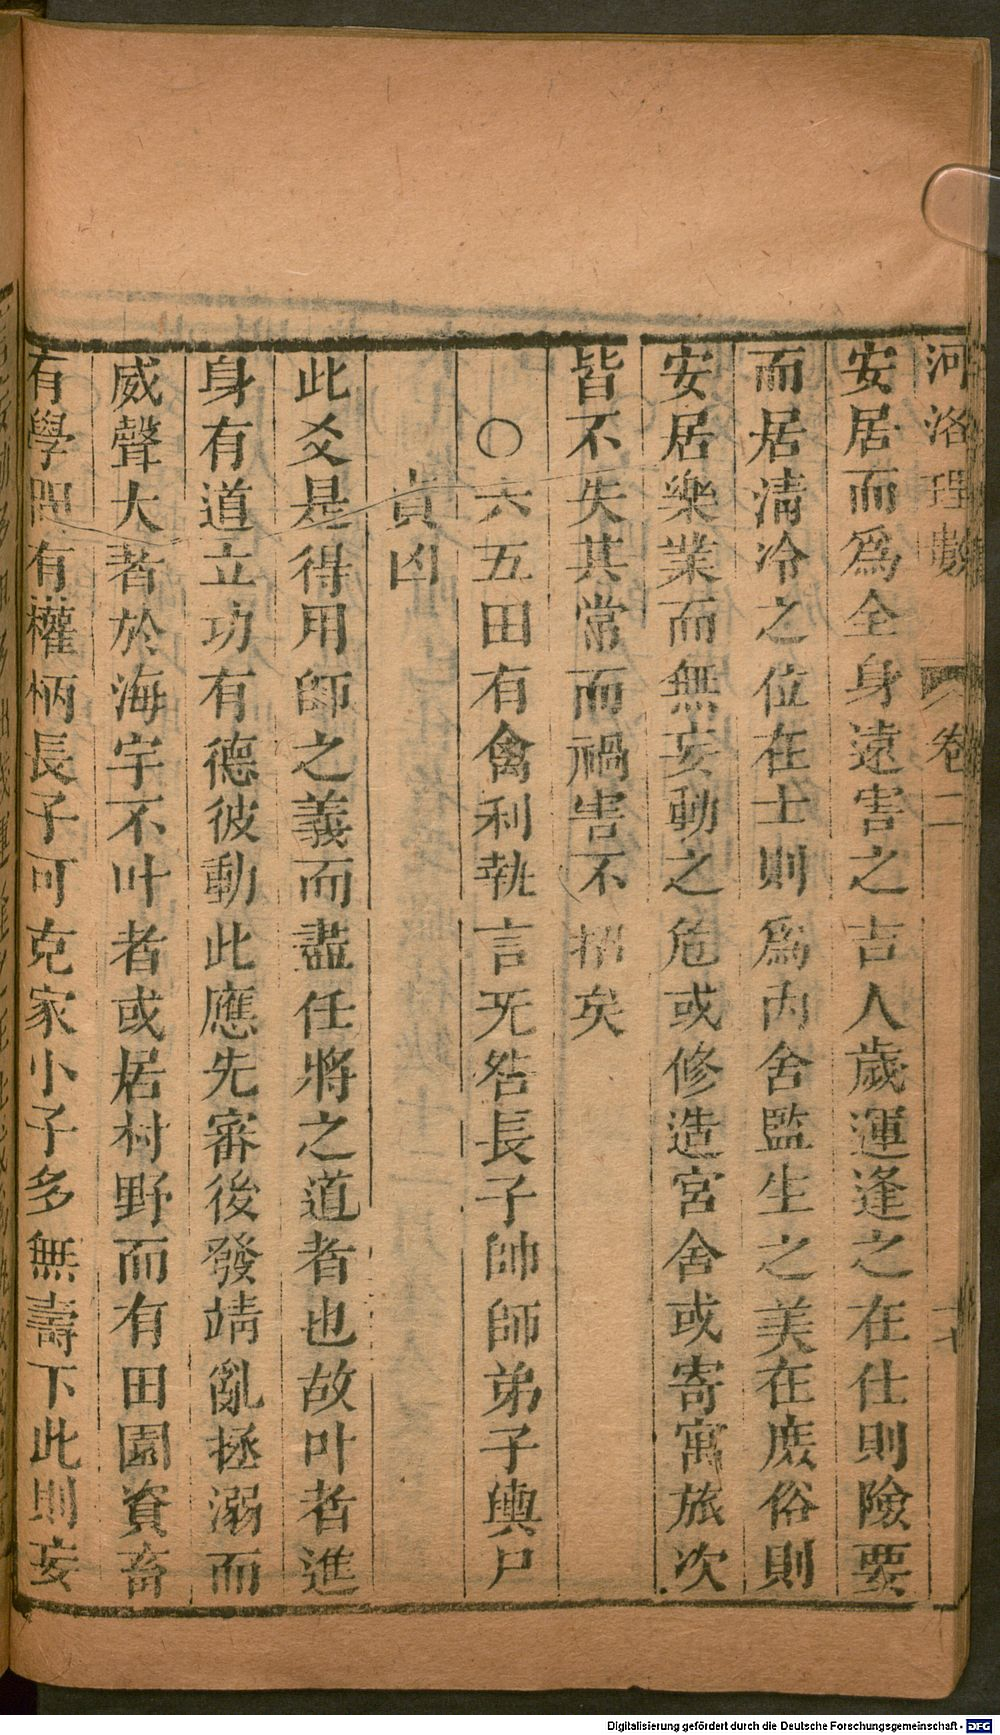 河洛理數 卷二 十七
安居而爲全身遠害之吉人歲運逢之在仕則險要
而居淸冷之位在士則爲内舍監生之美在庻俗則
安居樂業而無妄動之危或修造宮舍或寄寓旅次
皆不失其常而禍害不招矣
○六五田有禽利執言无咎長子帥師弟子輿尸
貞凶
此爻是得用師之義而盡任將之道者也故叶者進
身有道立功有德彼動此應先審後發靖亂拯溺而
威聲大者於海宇不叶者或居村野而有田園資畜
有學問有權柄長子可克家小子多無壽下此則妄
Digitalisierung gefördert durch die Deutsche Forschungsgemeinschaft - DFG